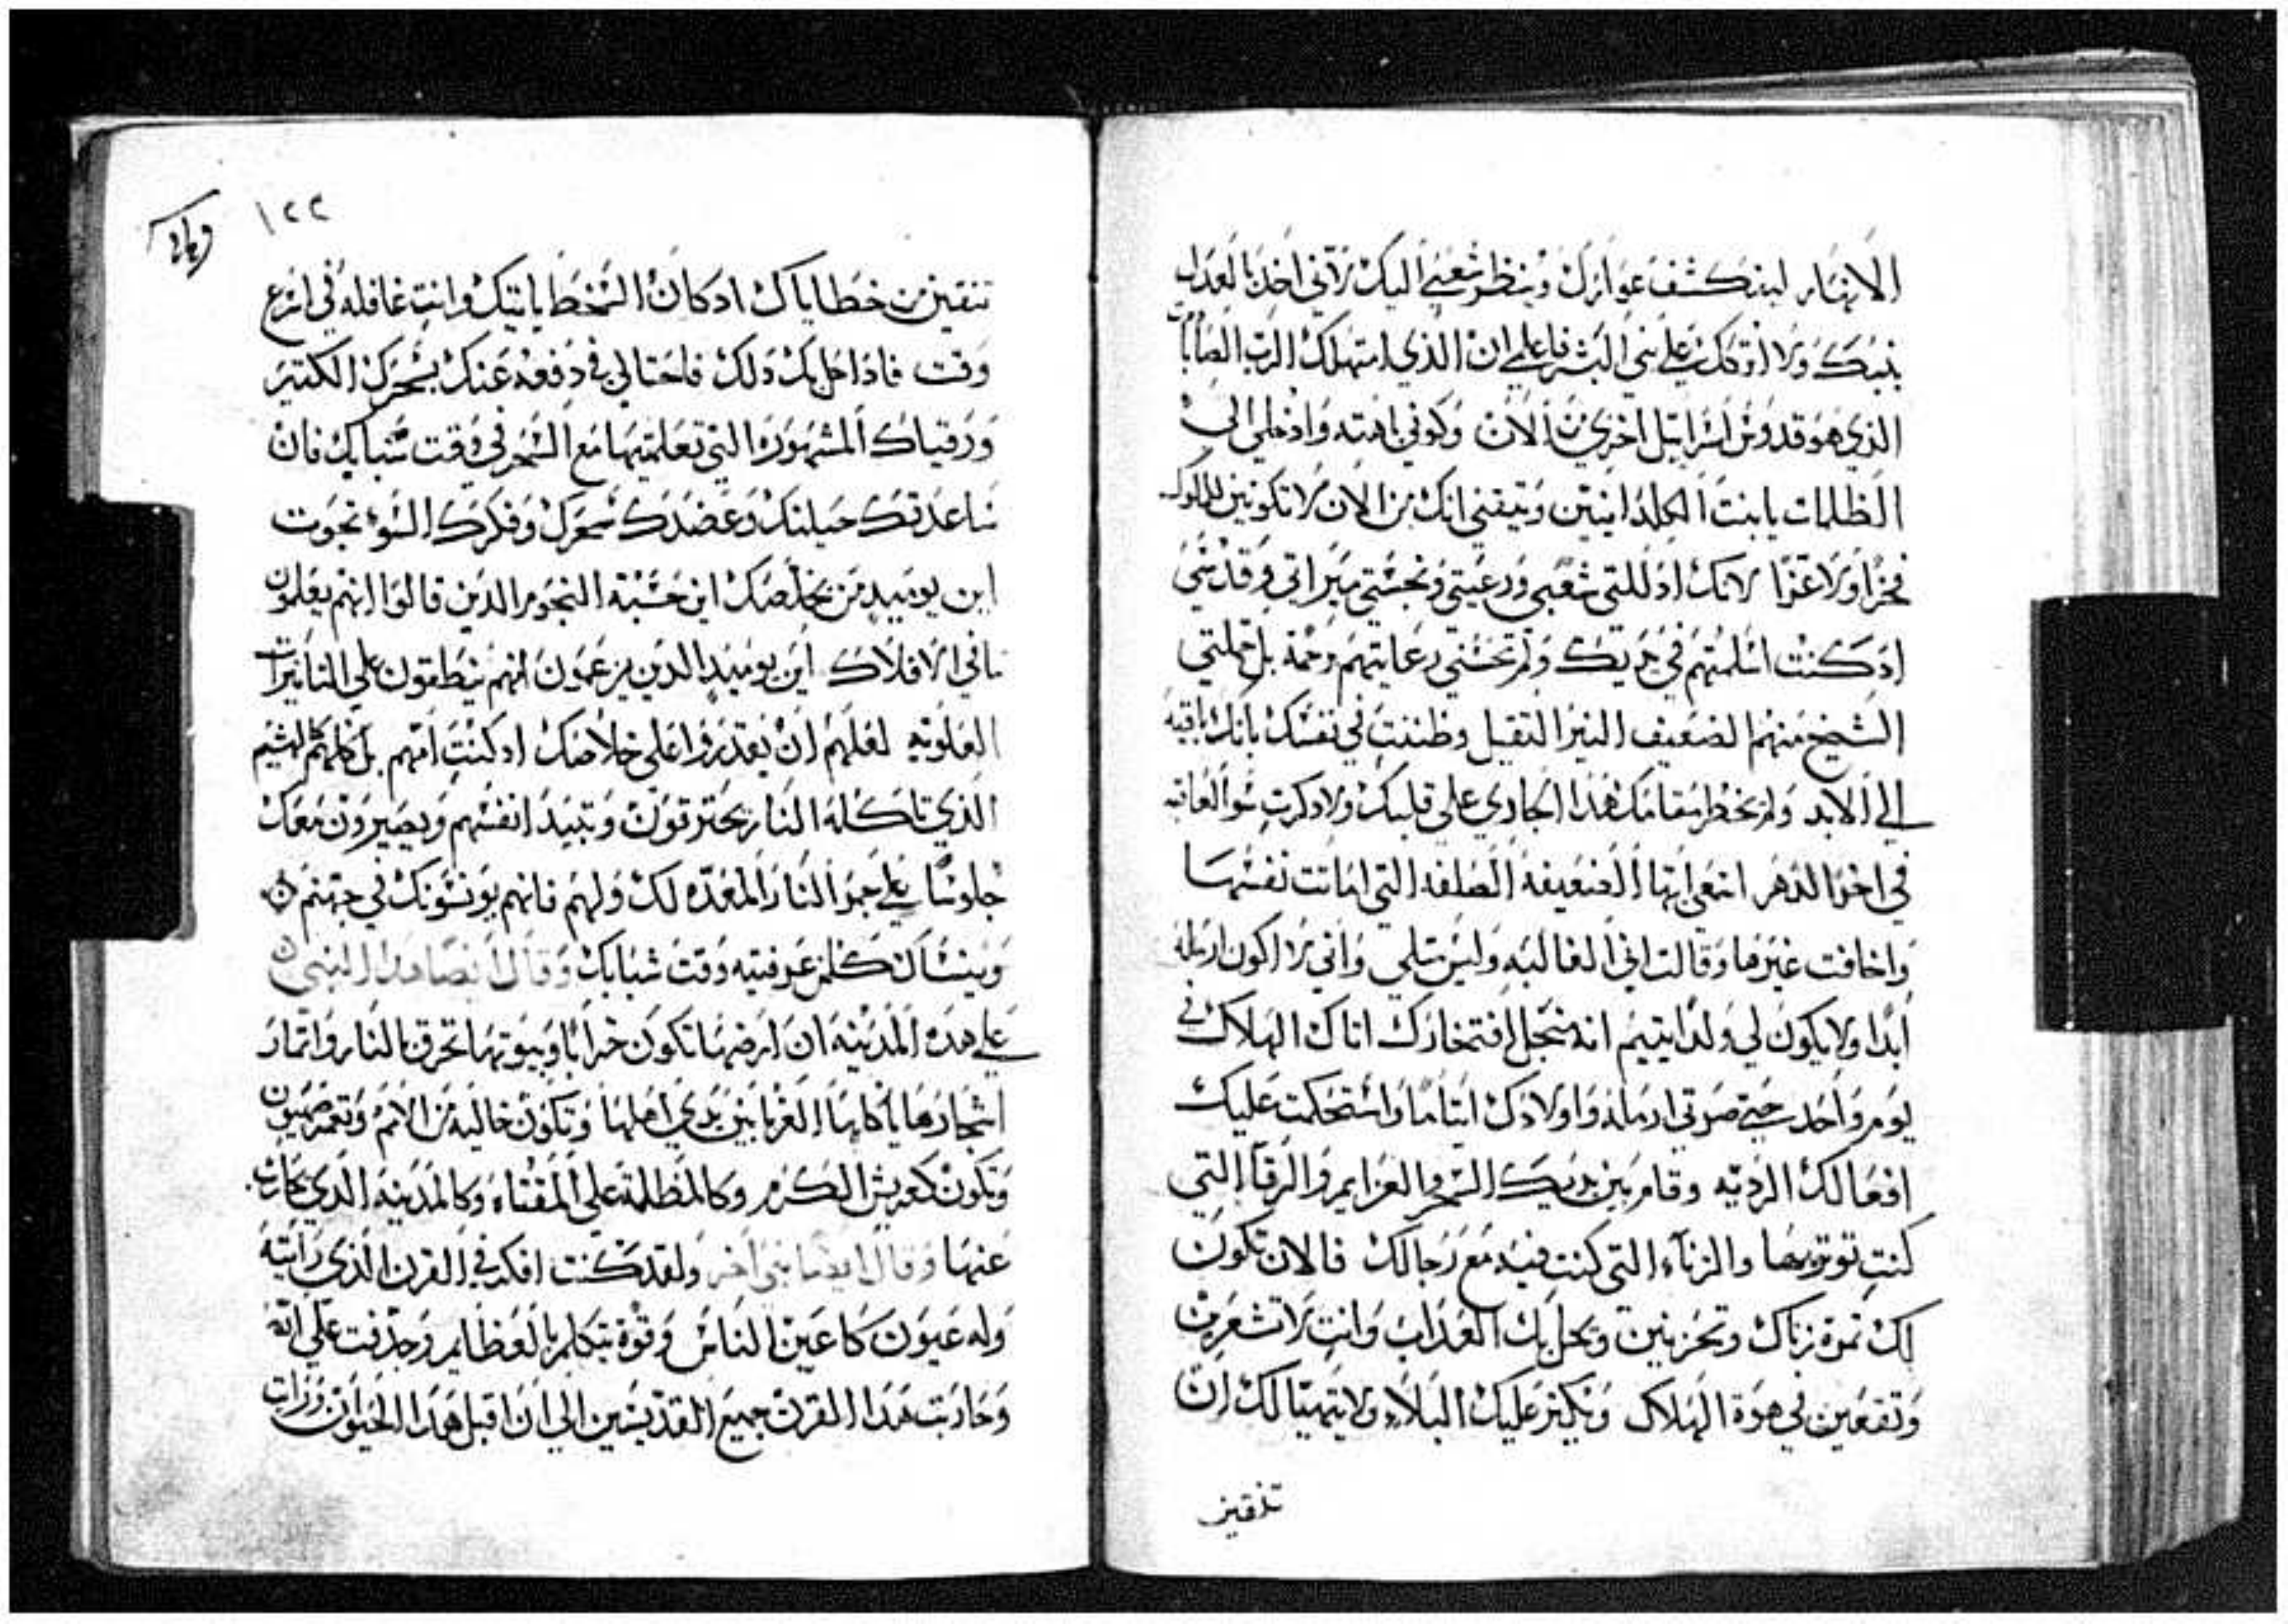 الانهار لينكشف عوارك وينظر شعبي اليك لاني اخد بالعدل
بنيك ولا اتوكل علي بني البشر فاعلمي ان الذي امتهلك الرب الصاباوت
الذي هو قدوس اسراييل اخزي من الان وكوني باهته وادخلي الي
الظلمات يا بنت الكلدانيين وتيقني انك من الان لا تكونين للملوك
فخرًا ولا عزًا لانك ادللتي شعبي ورعيتي ونجستي ميراتي وقدسي
اد كنت اسلمتهم في يديك ولم تحسني رعايتهم رحمة بل حملتي
الشيخ منهم الضعيف النير التقيل وظننت في نفسك بانك باقيه
الي الابد ولم يخطر مقامك هدا الجاري علي قلبك ولا دكرت سو العاقبه
في اخر الدهر اسمعي ايتها الضعيفة الصلفه التي امانت نفسها
واخافت غيرها وقالت اني الغالبه وليس متلي واني لا اكون ارمله
ابدًا ولا يكون لي ولدًا يتيم انه سنجل افتخارك اتاك الهلاك في
يوم واحد حتي صرتي ارملة واولادك ايتامًا واستحكمت عليك
افعالك الرديه وقام بين يديك السحر والعزايم والرقا التي
كنت توتريها والزناء التي كنت فيه مع رجالك فالان تكون
لك تمرة زناك وتحزنين ويحل بك العداب وانت لا تشعرين
وتقعين في هوة الهلاك ويكتر عليك البلاء ولا يتهيا لك ان
تنقين
١٢٢
تنقين من خطاياك اد كان السخط ياتيك وانت غافله في اسرع
وقت فادا حل بك دلك فاحتالي في دفعه عنك بسحرك الكتير
ورقياك المشهورة التي تعلمتيها مع السحر في وقت شبابك فان
ساعدتك حيلتك وعضدك سحرك وفكرك السوء نجوت
اين يوميدٍ من يخلصك اين حسبة النجوم الدين قالوا انهم يعلمون
ما في الافلاك اين يوميدٍ الدين يزعمون انهم ينطقون علي التاتيرات
العلويه لعلهم ان يقدروا علي خلاصك اد كنت امهم بل كلهم كالهشيم
الدي تاكله النار يحترقون وتبيد انفسهم ويصيرون معك
جلوسًا علي جمر النار المعده لك ولهم فانهم يونسونك في جهنم
وينساك كلمن عرفتيه وقت شبابك وقال ايضا هدا النبي
علي هده المدينه ان ارضها تكون خرابًا وبيوتها تحرق بالنار واتمار
اشجارها ياكلها الغربا بين يدي اهلها وتكون خاليه من الامم وتعمر صهيون
وتكون كعريش الكرم وكالمظلة علي المقتاه وكالمدينه الدي يحارب
عنها وقال ايضا نبي اخر ولقد كنت افكر في القرن الدي رايته
وله عيون كاعين الناس وقوة يتكلم بالعظايم وجدفت علي الله
وحاربت هدا القرن جميع القديسين الي ان اقبل هدا الحيوان ورات